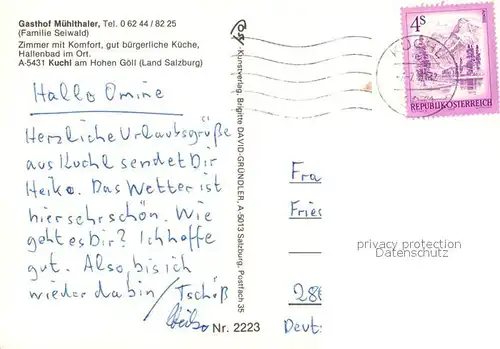 Gasthof Mühlthaler, Tel. 0 62 44 / 82 25
(Familie Seiwald)
Zimmer mit Komfort, gut bürgerliche Küche,
Hallenbad im Ort.
A-5431 Kuchl am Hohen Göll (Land Salzburg)
Hallo Omine
Herzliche Urlaubsgrüße
aus Kuchl sendet Dir
Heiko. Das Wetter ist
hier sehr schön. Wie
geht es Dir? Ich hoffe
gut. Also, bis ich
wieder da bin / Tschüß
Heiko
Nr. 2223
Kunstverlag, Brigitte DAVID-GRÜNDLER, A-5013 Salzburg, Postfach 35
4S
REPUBLIK ÖSTERREICH
KUCHL
Fra
Fries
286
Deut
privacy protection
Datenschutz